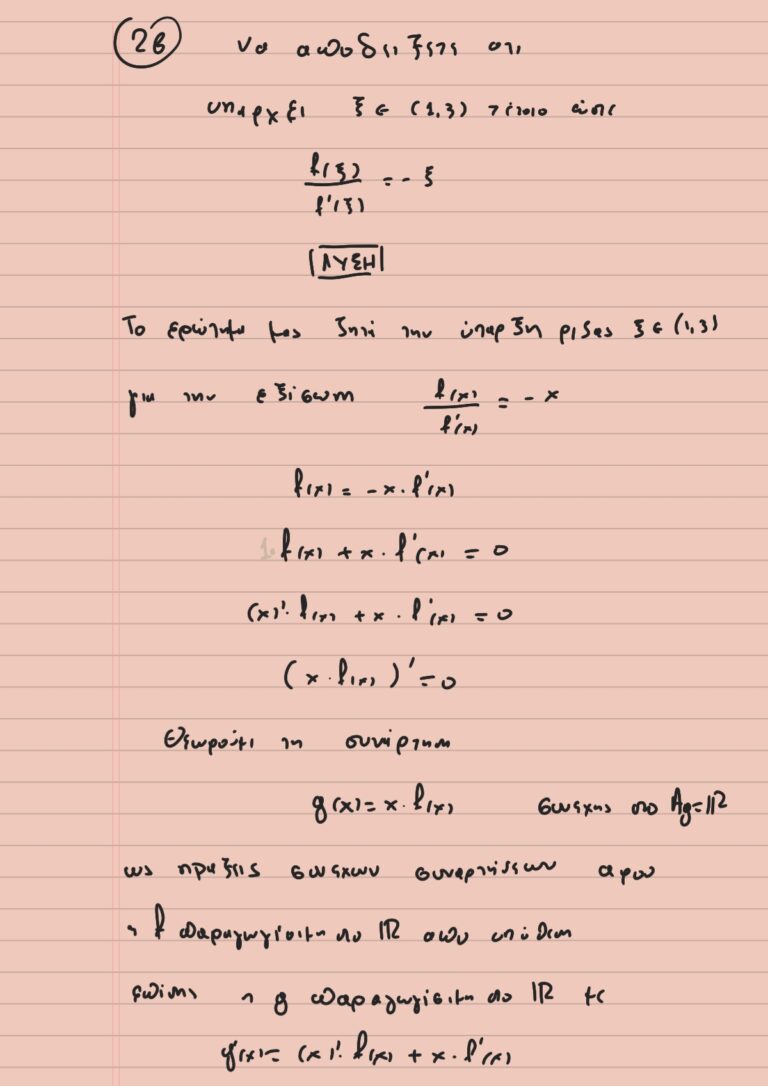 2β Να αποδείξετε οτι
υπαρχει ξ ∈ (1,3) τέτοιο ώστε
f(ξ) / f'(ξ) = - ξ
ΛΥΣΗ
Το ερώτημα μας ζητά την ύπαρξη ριζας ξ ∈ (1,3)
για την εξίσωση f(x) / f'(x) = - x
f(x) = - x · f'(x)
1· f(x) + x · f'(x) = 0
(x)' · f(x) + x · f'(x) = 0
(x · f(x))' = 0
Θεωρούμε τη συνάρτηση
g(x) = x · f(x) συνεχης στο Ag = ℝ
ως πραξεις συνεχων συναρτήσεων αφου
η f παραγωγίσιμη στο ℝ απο υπόθεση
επίσης η g παραγωγίσιμη στο ℝ με
g'(x) = (x)' · f(x) + x · f'(x)